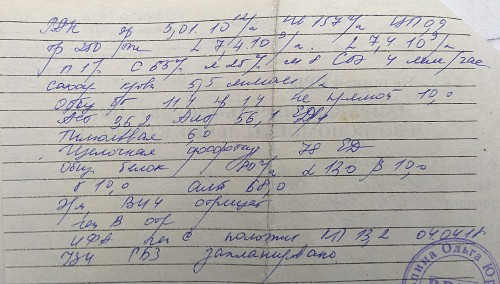 РАК эр 5,01·10¹²/л Нв 157 г/л ЦП 0,9
тр 250 тыс L 7,4·10⁹/л, L 7,4·10⁹/л
п 1% С 65% л 25% м 8 СОЭ 4 мм/час
сахар крови 5,5 ммоль/л
Общ бб 11,4 пр 1,4 не прямой 10,0
Аст 26,2 Алт 56,1 ЕД/л
Тимоловая 6,0
Щелочная фосфатаз 78 ЕД
Общ белок 80 г/л α 13,0 β 10,0
γ 10,0 альб 68,0
Эрм ВИЧ отрицат
геп В отр
ИФА геп С положит КП 13,2 04.04.18
УЗИ ГБЗ запланировано
лина Ольга Юр